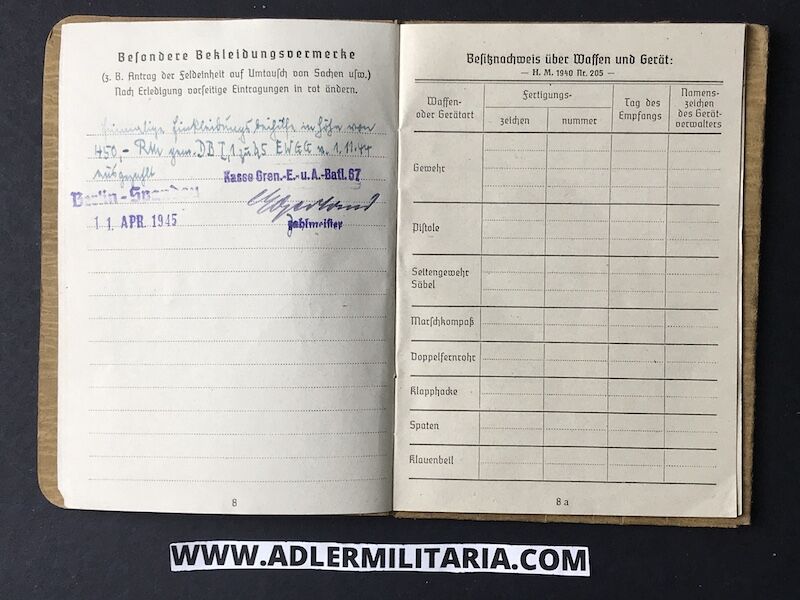 Besondere Bekleidungsvermerke
(z. B. Antrag der Feldeinheit auf Umtausch von Sachen usw.)
Nach Erledigung vorseitige Eintragungen in rot ändern.
Einmalige Einkleidungsbeihilfe in Höhe von
450,- RM gem. DB I,1 zu A5 EWGG v. 1.11.44
ausgezahlt
Kasse Gren.-E.-u.A.-Batl. 67
Berlin-Spandau
11. APR. 1945
Zahlmeister
8
Besitznachweis über Waffen und Gerät:
— H. M. 1940 Nr. 205 —
Waffen- oder Gerätart
Fertigungs-
zeichen
nummer
Tag des Empfangs
Namens- zeichen des Gerät- verwalters
Gewehr
Pistole
Seitengewehr
Säbel
Marschkompaß
Doppelfernrohr
Klapphacke
Spaten
Klauenbeil
8 a
WWW.ADLERMILITARIA.COM